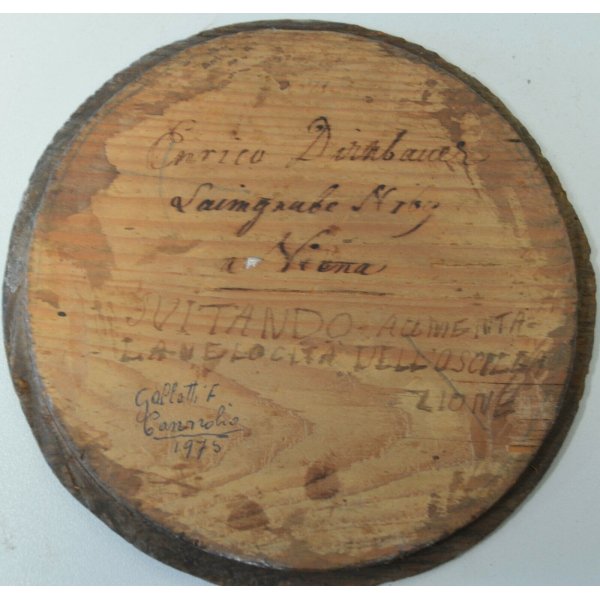 Enrico Dirnbauer
Laimgrube N
a Viena
VITANDO - AUMENTA -
LA VELOCITÀ DELL'OSCILLA
ZIONE
Galletti F
1975